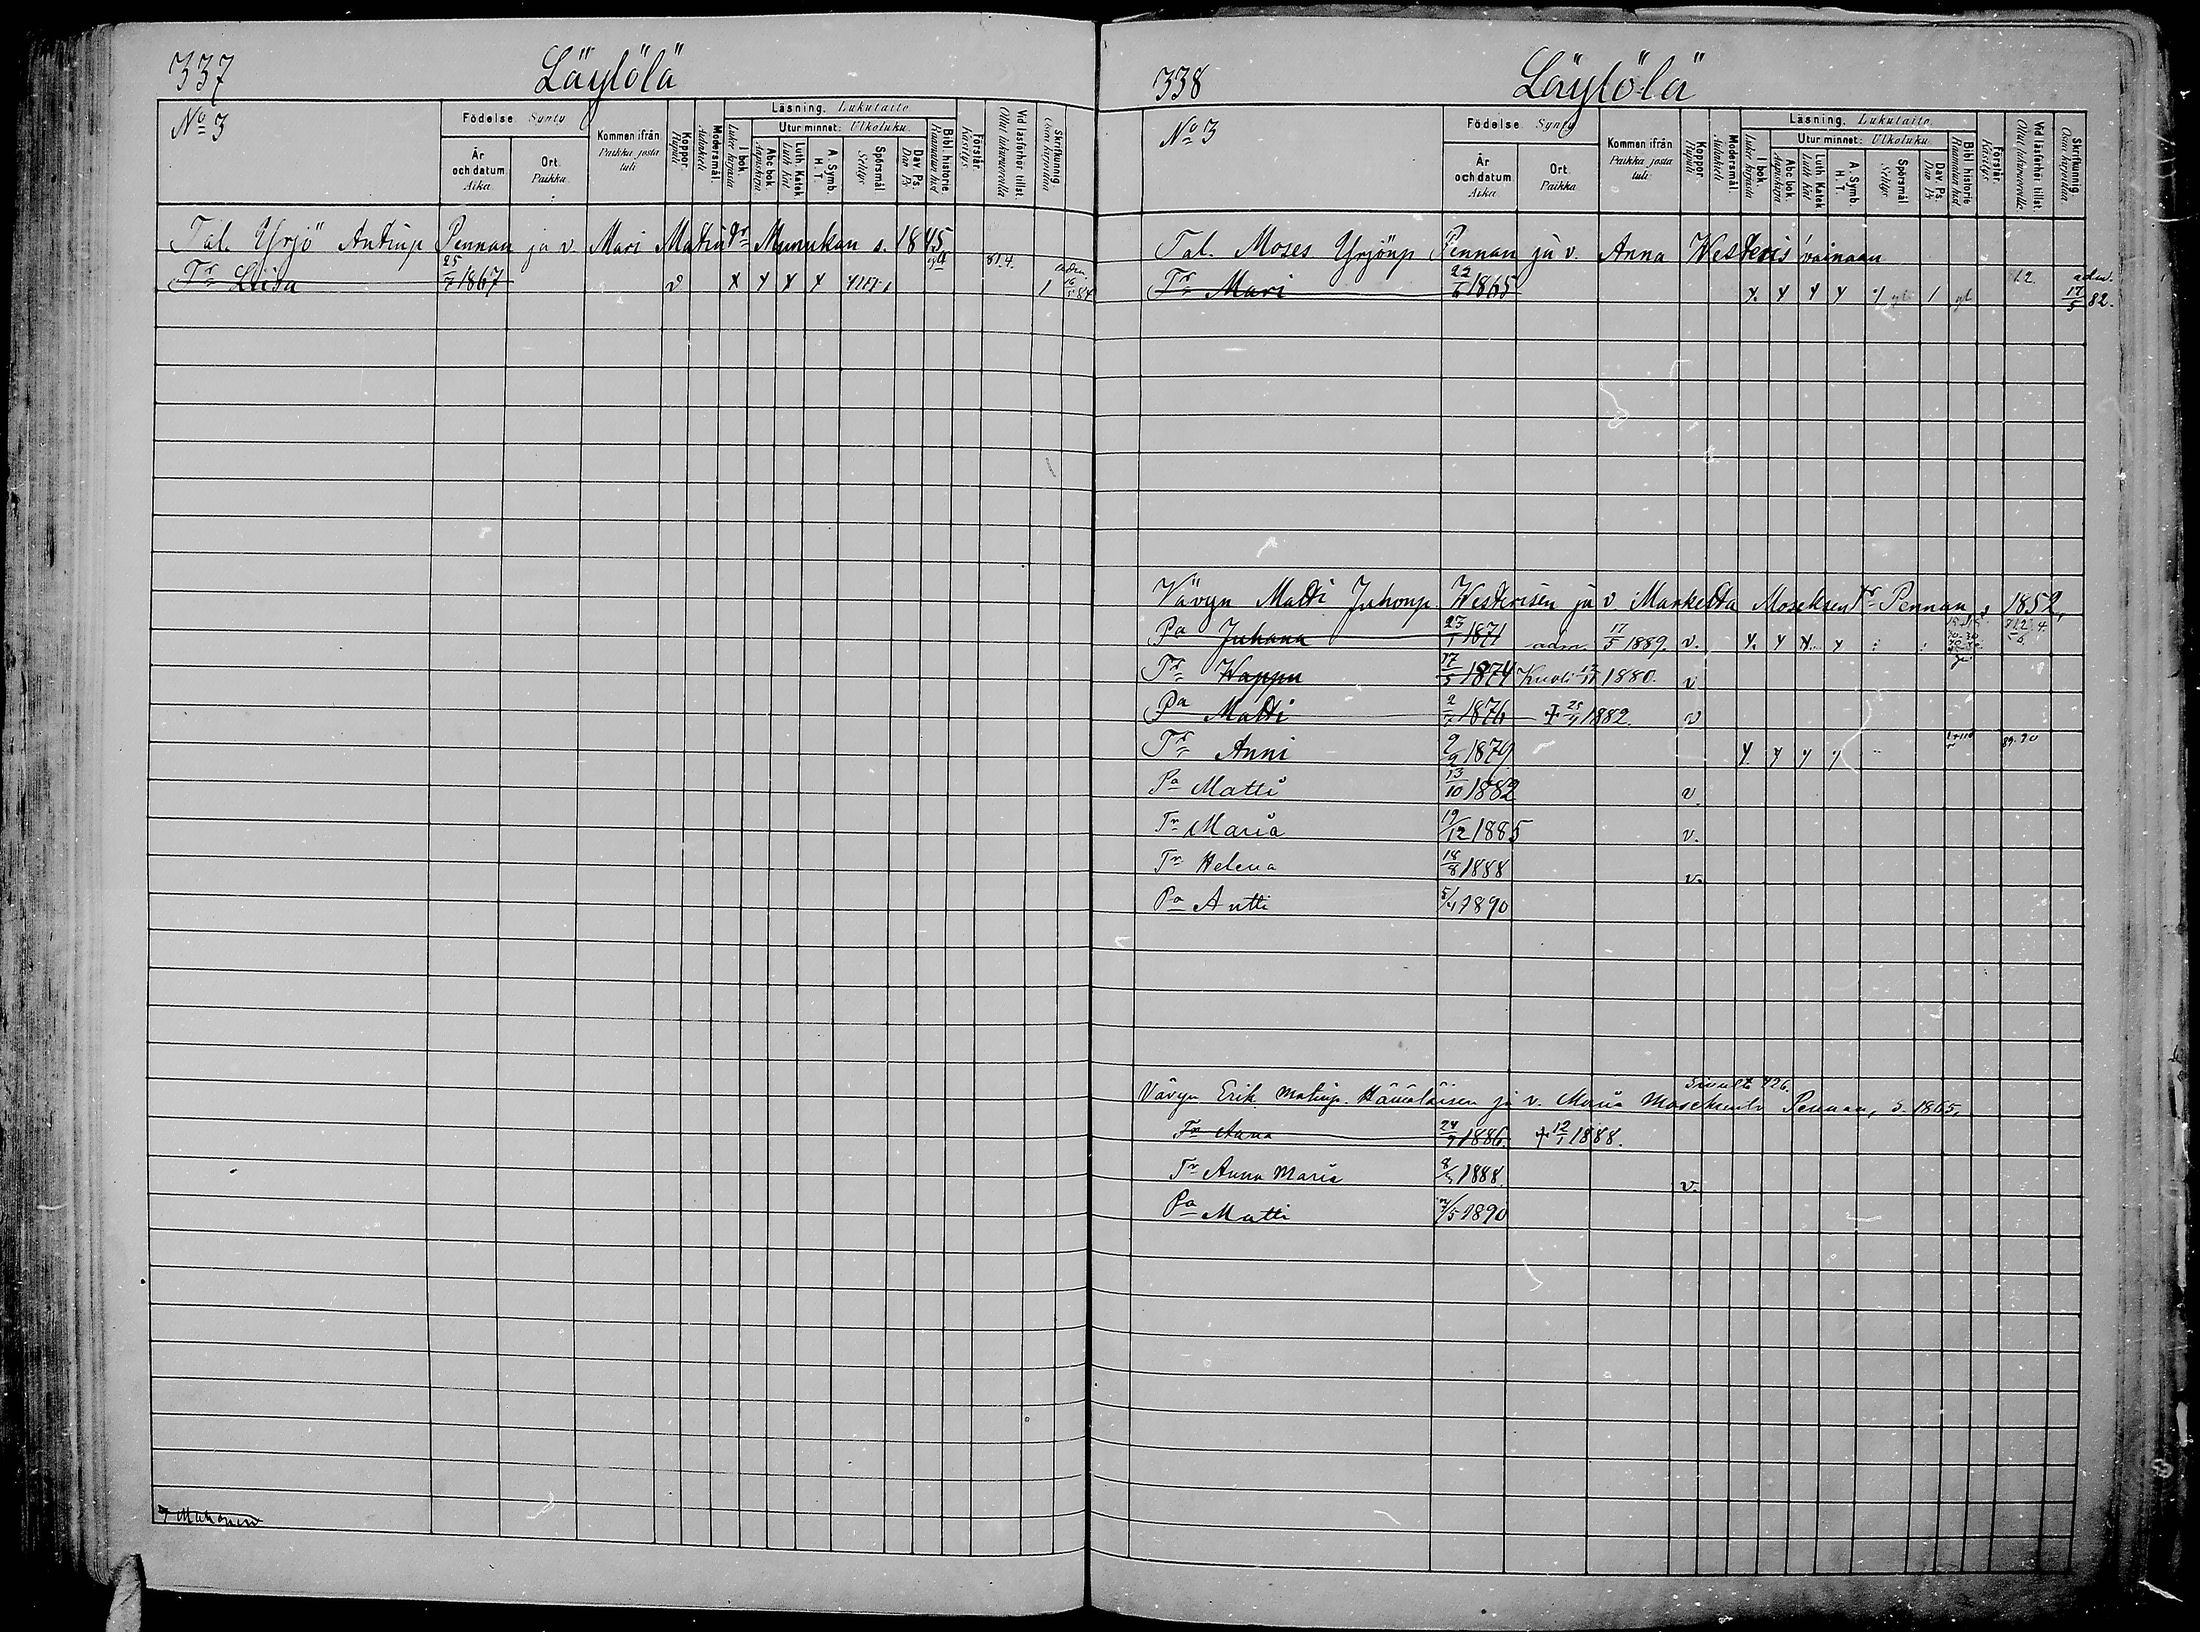 337
Läylölä
No 3
Födelse. Synty
År och datum. Aika.
Ort. Paikka.
Kommen ifrån Paikka josta tuli
Koppor. Rupuli
Modersmål. Äidinkieli
Läsning. Lukutaito
I bok. Lukee kirjasta
Utur minnet: Ulkoluku.
Abc bok. Aapiskirja
Luth. Katek. Luth Kat
A. Symb. H. T.
Spörsmål Selitys
Dav. Ps. Dav Ps
Bibl historie Raamatun hist
Förstår. Käsitys.
Vid läsförhör tillst. Ollut lukuvuorolla
Skrifkunnig Osaa kirjoittaa
Tal. Yrjö Antinp Pennan ja v. Mari Matin tr Munukan s. 1845
Tr Liisa 25/7 1867 v 81.4. 1 adm. 16/5 84
Makonen
338
Läylölä
No 3
Födelse. Synty
År och datum. Aika
Ort. Paikka
Kommen ifrån Paikka josta tuli
Koppor. Rupuli
Modersmål. Äidinkieli
Läsning. Lukutaito
I bok. Lukee kirjasta
Utur minnet: Ulkoluku.
Abc bok. Aapiskirja
Luth. Katek. Luth Kat
A. Symb. H. T.
Spörsmål Selitys
Dav. Ps. Dav Ps
Bibl historie Raamatun hist
Förstår. Käsitys.
Vid läsförhör tillst. Ollut lukuvuorolla.
Skrifkunnig. Osaa kirjoittaa.
Tal. Moses Yrjönp Pennan ja v. Anna Westeris vainaan
Tr Mari 22/6 1865 1 82. adm. 17/5 82.
Vävyn Matti Juhonp Westerisen ja v Marketta Moseksen tr Pennan s 1852,
Pa Juhana 23/1 1871 adm. 17/5 1889. v.
Tr Wappu 17/5 1874 Kuoli 1880. v
Pa Matti 1876 + 25/4 1882. v
Tr Anni 9/2 1879 89.90
Pa Matti 13/10 1882 v.
Tr Maria 19/12 1885 v.
Tr Helena 18/8 1888 v.
Pa Antti 5/4 1890
Sivulta 426.
Vävyn Erik Matinp. Hämäläisen ja v. Maria Moseksentr Pennan, s. 1865,
Tr Anna 24/9 1886 + 12/1 1888.
Tr Anna Maria 1888. v.
Pa Matti 1890